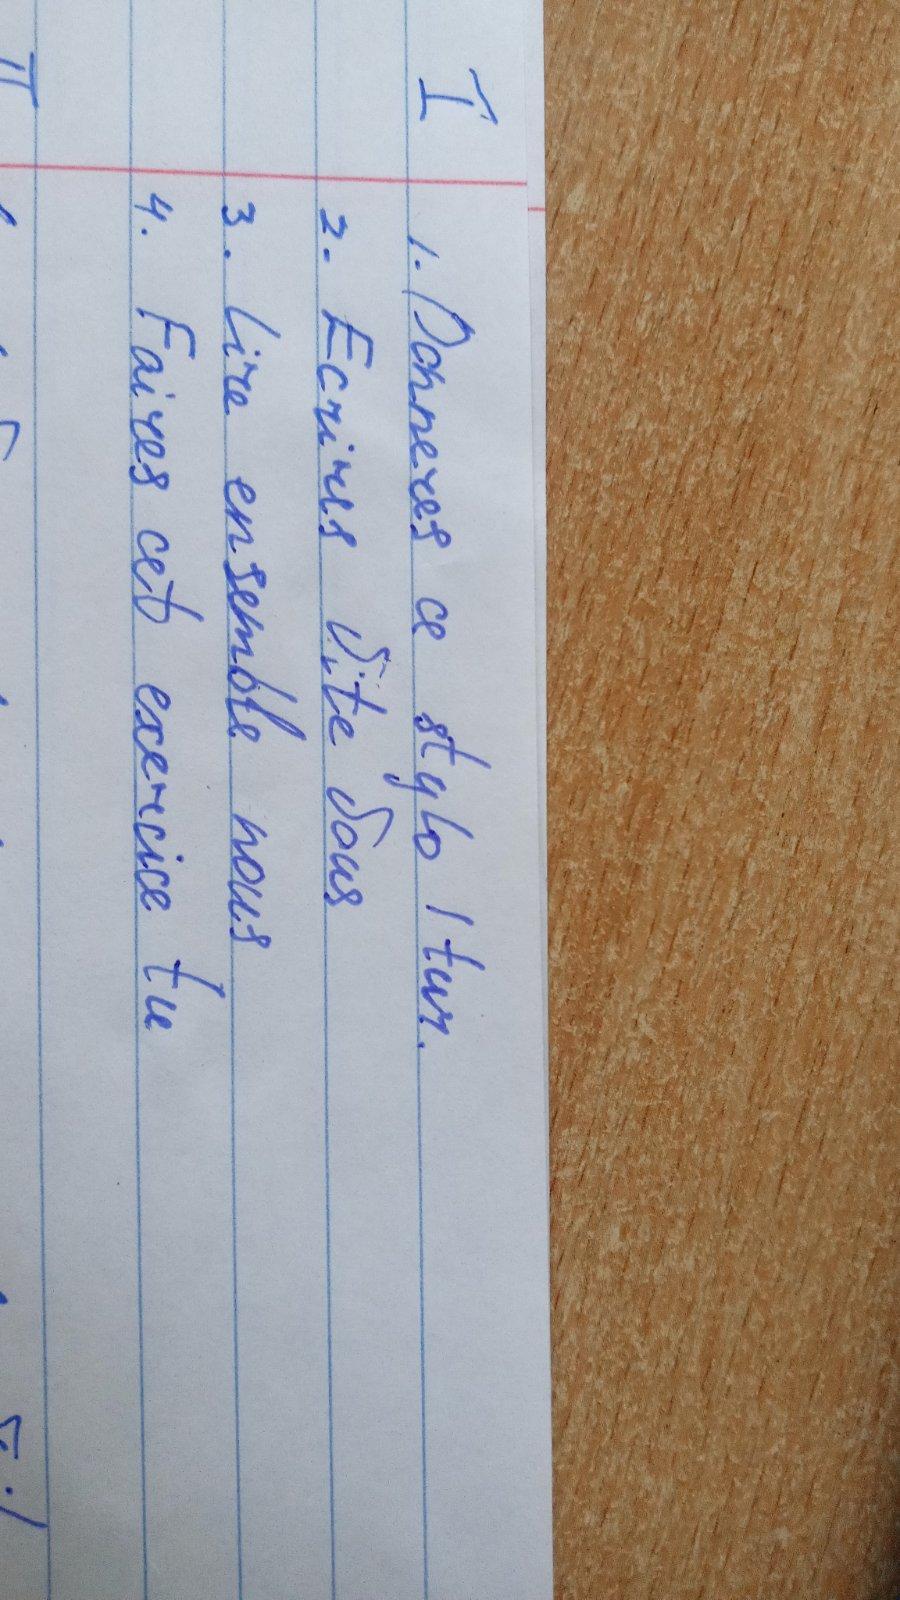 I
1. Donneres ce stylo 1 tur.
2. Ecrires vite vous
3. Lire ensemble nous
4. Faires cet exercice tu
II